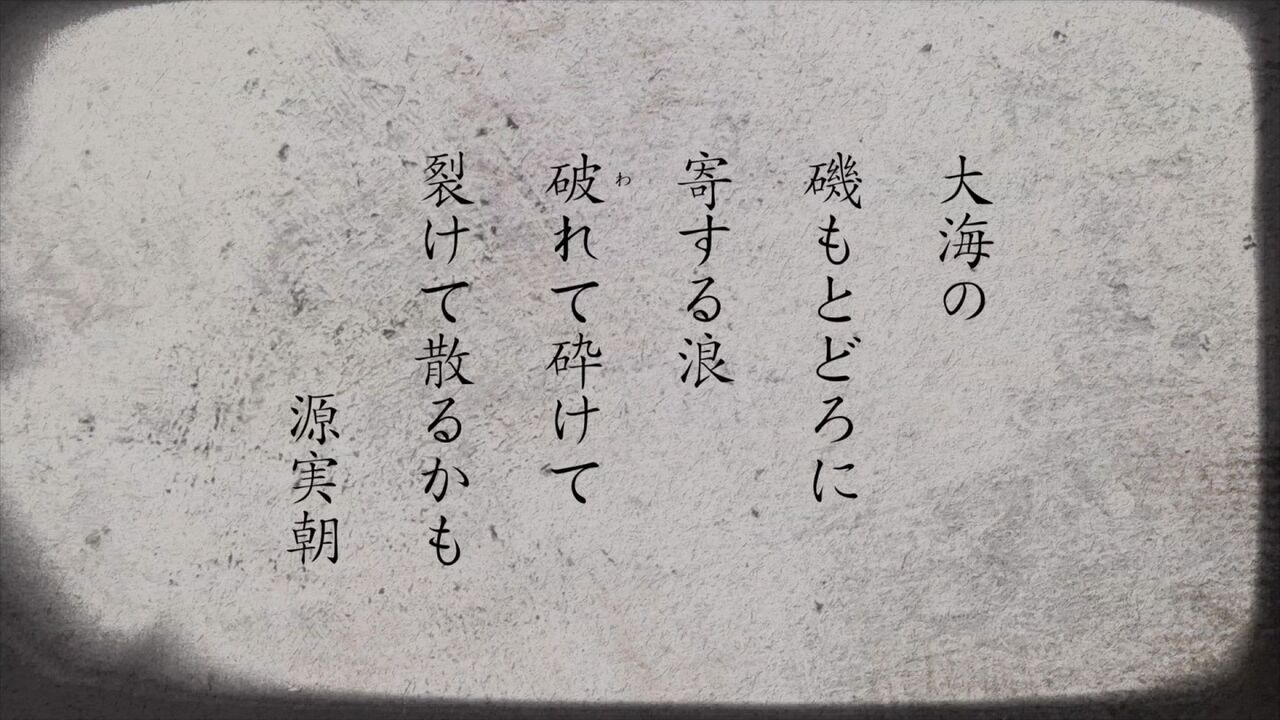 大海の
磯もとどろに
寄する浪
破れて砕けて
わ
裂けて散るかも
源実朝